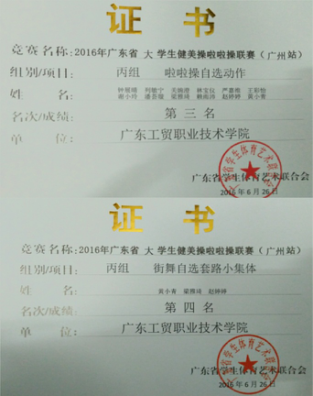 证书
竞赛名称：2016年广东省 大 学生健美操啦啦操联赛（广州站）
组别/项目： 丙组 啦啦操自选动作
姓 名：
名次/成绩： 第三名
单 位： 广东工贸职业技术学院
广东省学生体育艺术联合会
2016年6月26日
证书
竞赛名称：2016年广东省 大 学生健美操啦啦操联赛（广州站）
组别/项目： 丙组 街舞自选套路小集体
姓 名： 黄小青 梁雅琦 赵婷婷
名次/成绩： 第四名
单 位： 广东工贸职业技术学院
广东省学生体育艺术联合会
2016年6月26日